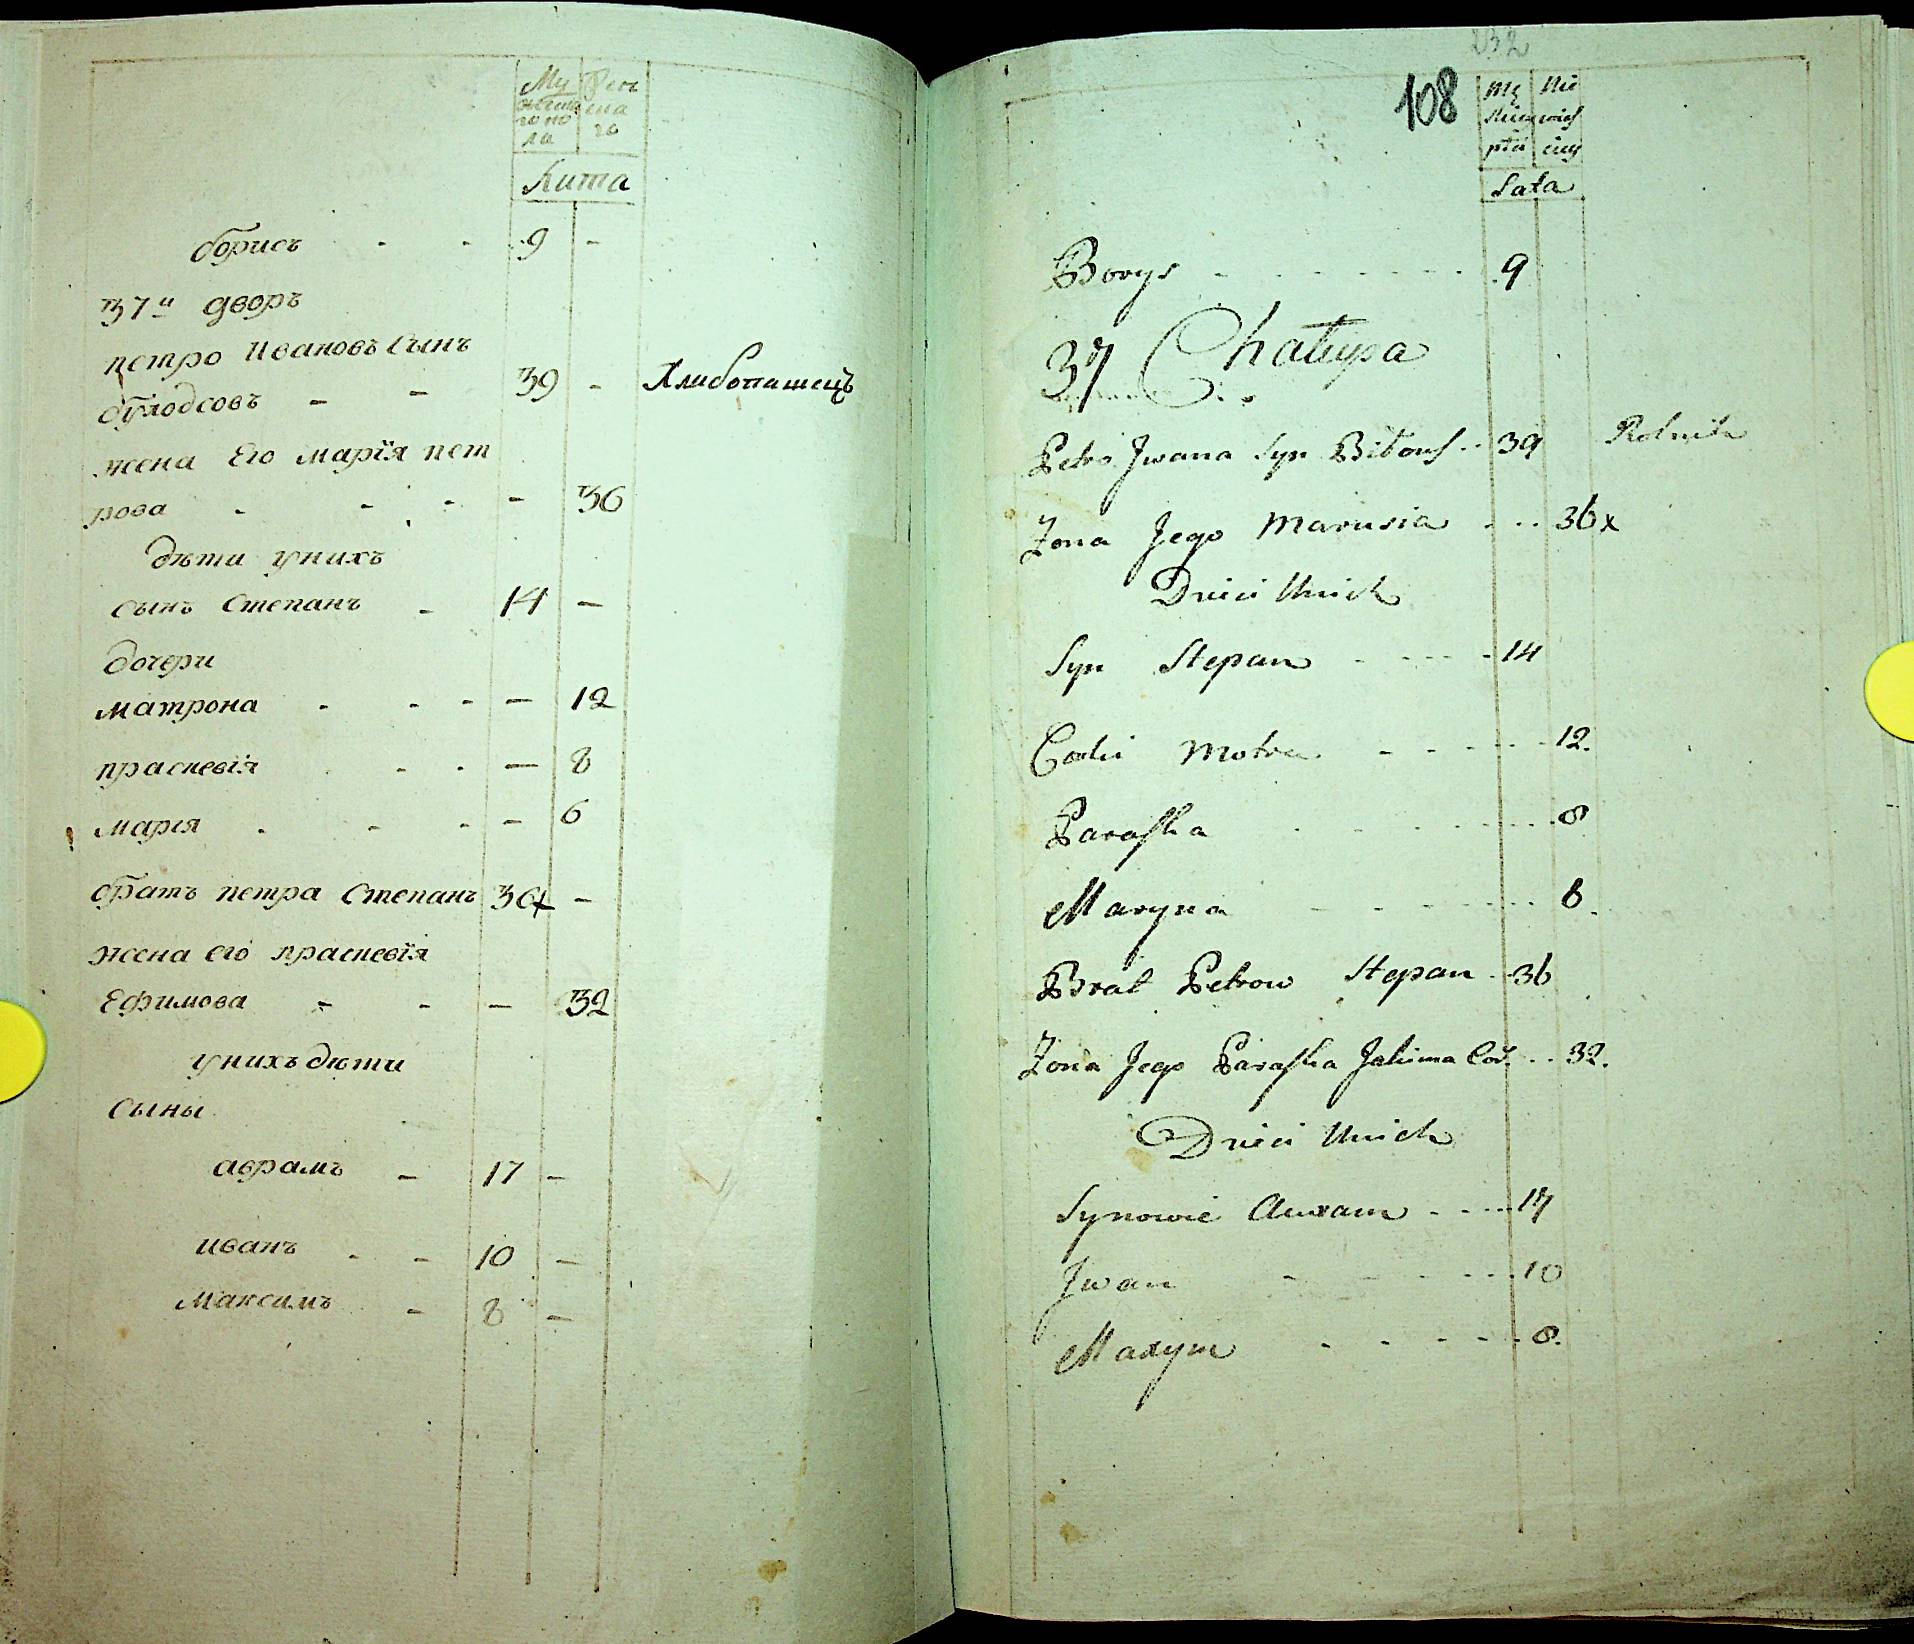 Му
жеска
го по
ла
Жен
ска
го
Лита
борисъ - - 9 -
37й дворъ
петро Ивановъ сынъ
39 - Хлибопашецъ
жена Его марїя пет
рова - - - - 36
дѣти унихъ
сынъ Степанъ - 14 -
дочери
матрона - - - - 12
праскевїя - - - 8
марїя - - - - 6
братъ петра Степанъ 36x -
жена его праскевїя
Ефимова - - - 32
унихъ дѣти
сыны
аврамъ - 17 -
иванъ - - 10 -
Максимъ - 8 -
232
108
Lata
Borys - - - - - - 9
37 Chałupa
Petro Jwana Syn - - 39 Rolnik
Zona Jego Marusia - - - 36x
Dzieci Unich
Syn Stepan - - - - 14
Corki Motra - - - - - 12.
Paraska - - - - - - 8
Maryna - - - - - - 6.
Brat Petrow Stepan - 36
Zona Jego Paraska Jakima Cor. - - 32.
Dzieci Unich
Synowie Awram - - - - 17
Jwan - - - - - 10
Maxym - - - - - 8.